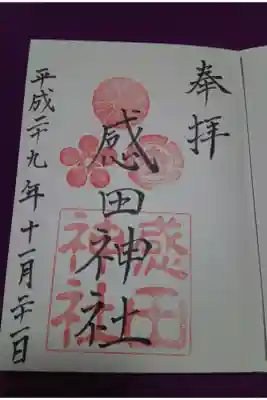 奉拝
感田神社
感田
神社
平成二十九年十一月二十一日